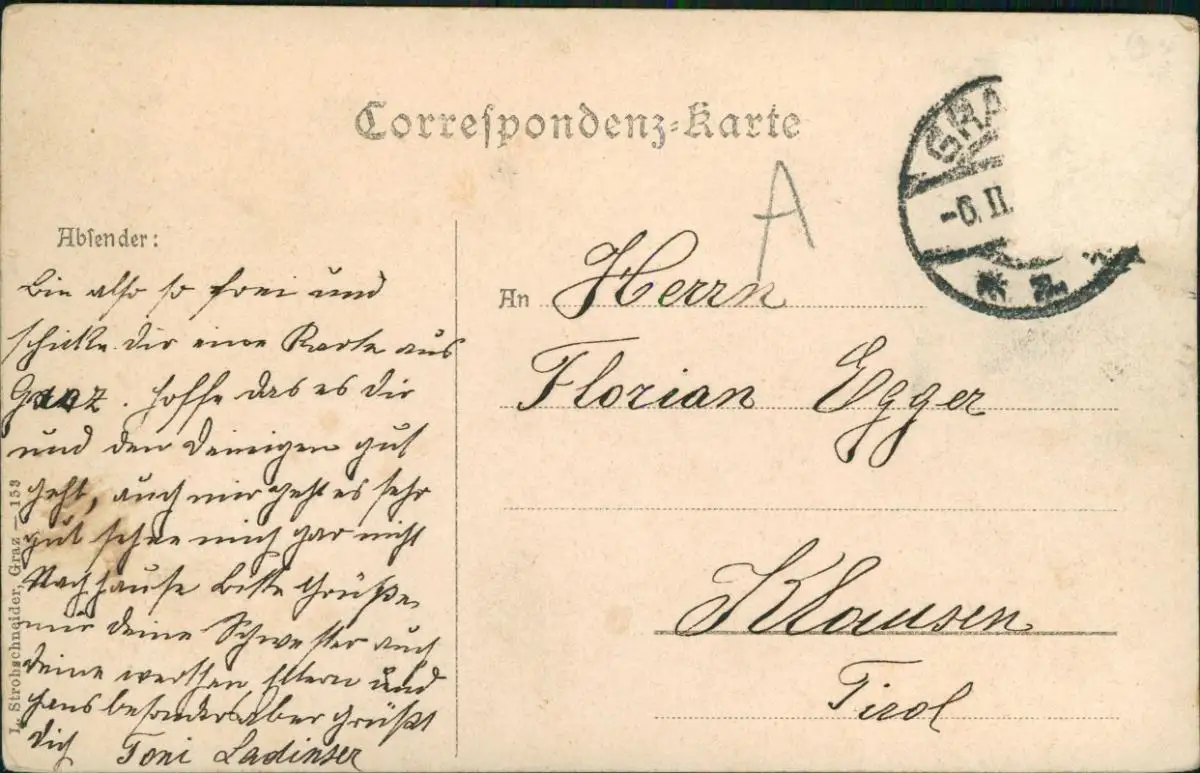 Correspondenz-Karte
GRA
-6.II.
A
Absender:
Bin also so frei und
schicke Dir eine Karte aus
Graz. hoffe das es dir
und den Deinigen gut
geht, auch mir geht es sehr
gut sehne mich gar nicht
Nach hause Bitte Grüße
mir deine Schwester auch
deine werthen Eltern und
Hans besonders aber Grüßt
dich Toni Ladinser
An Herrn
Florian Egger
Klausen
Tirol
L. Strohschneider, Graz — 153